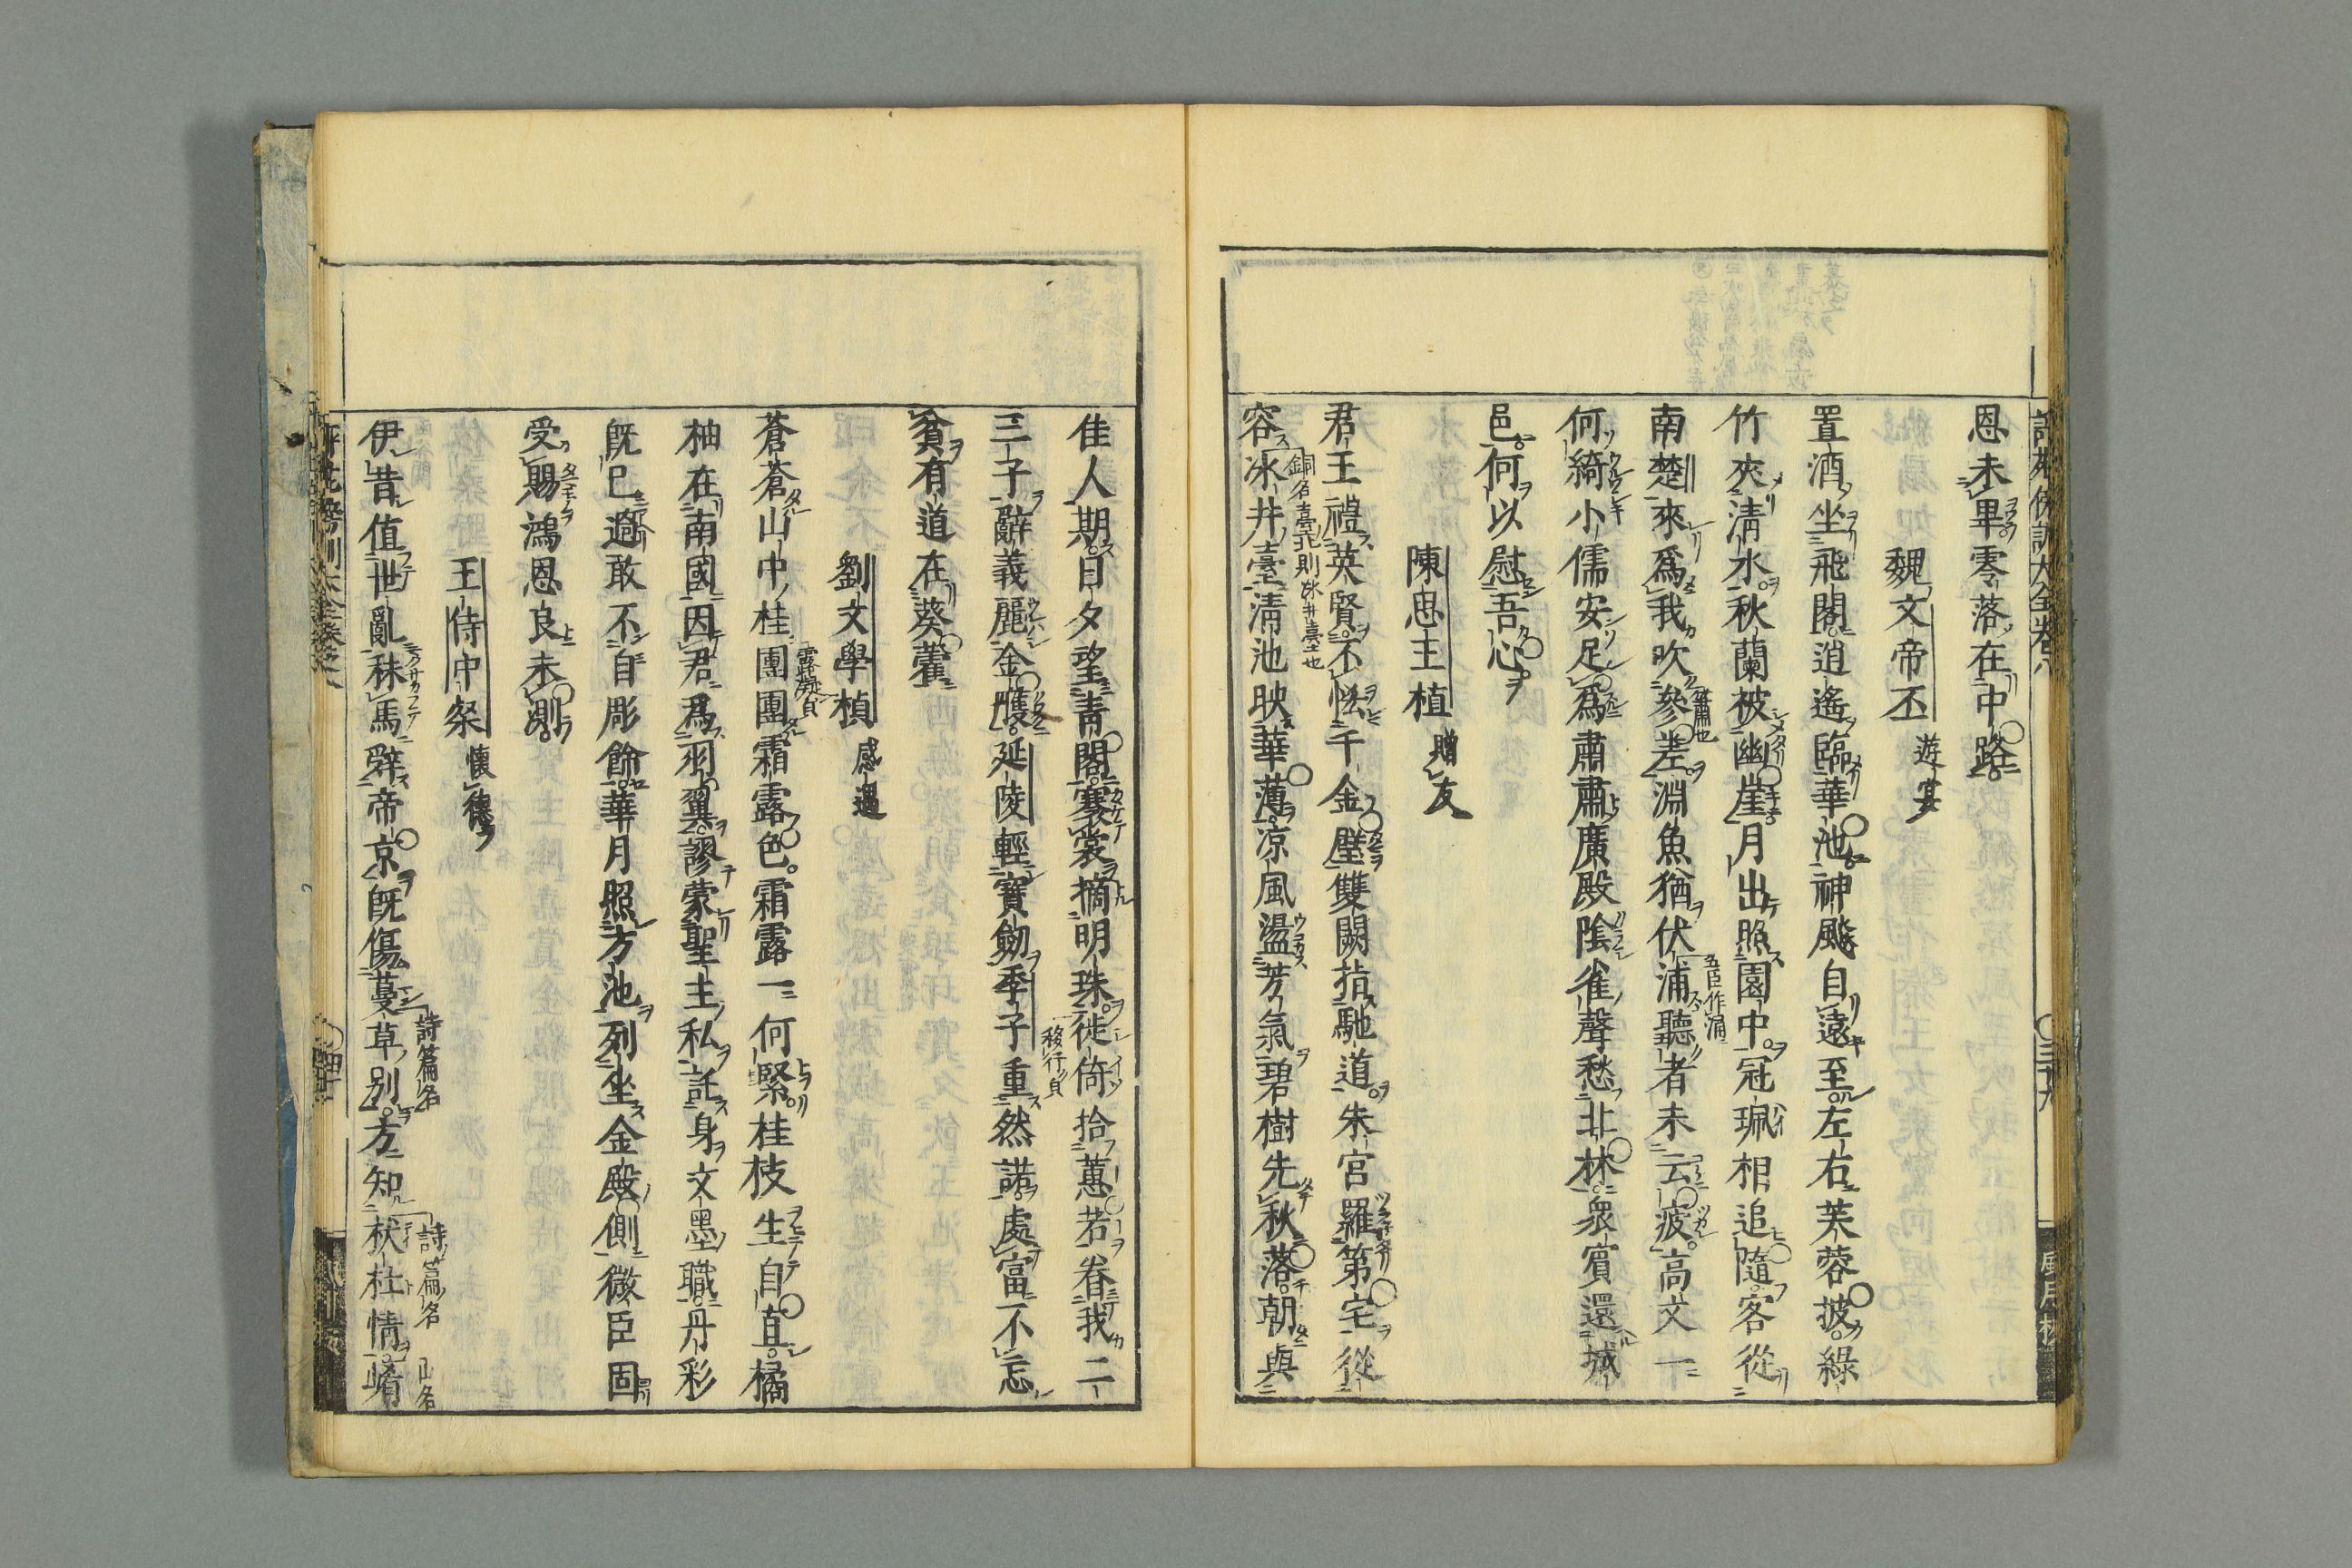 恩未畢零落在中路
魏文帝丕 遊宴
置酒坐飛閣逍遙臨華池神飈自遠至左右芙蓉披綠
竹夾清水秋蘭被幽崖月出照園中冠珮相追隨客從
南楚來爲我吹參差淵魚猶伏浦聽者未云疲高文一
簫也
五臣作涌
何綺小儒安足爲肅肅廣殿陰雀聲愁北林衆賓還城
邑何以慰吾心
陳思王植 贈友
君王禮英賢不恡千金璧雙闕指馳道朱宮羅第宅從
容冰井臺清池映華薄凉風盪芳氣碧樹先秋落朝與
佳人期日夕望青閣褰裳摘明珠徙倚拾蕙若眷我二
移行貝
三子辭義麗金雘延陵輕寶劒季子重然諾處富不忘
貧有道在葵藿
劉文學楨 感遇
蒼蒼山中桂團團霜露色霜露一何緊桂枝生自直橘
露凝貝
柚在南國因君爲羽翼謬蒙聖主私託身文墨職丹彩
旣已過敢不自彫飾華月照方池列坐金殿側微臣固
受賜鴻恩良未測
王侍中粲 懷德
伊昔值世亂秣馬辭帝京旣傷蔓草別方知杕杜情崤
詩篇名
詩篇名
山名